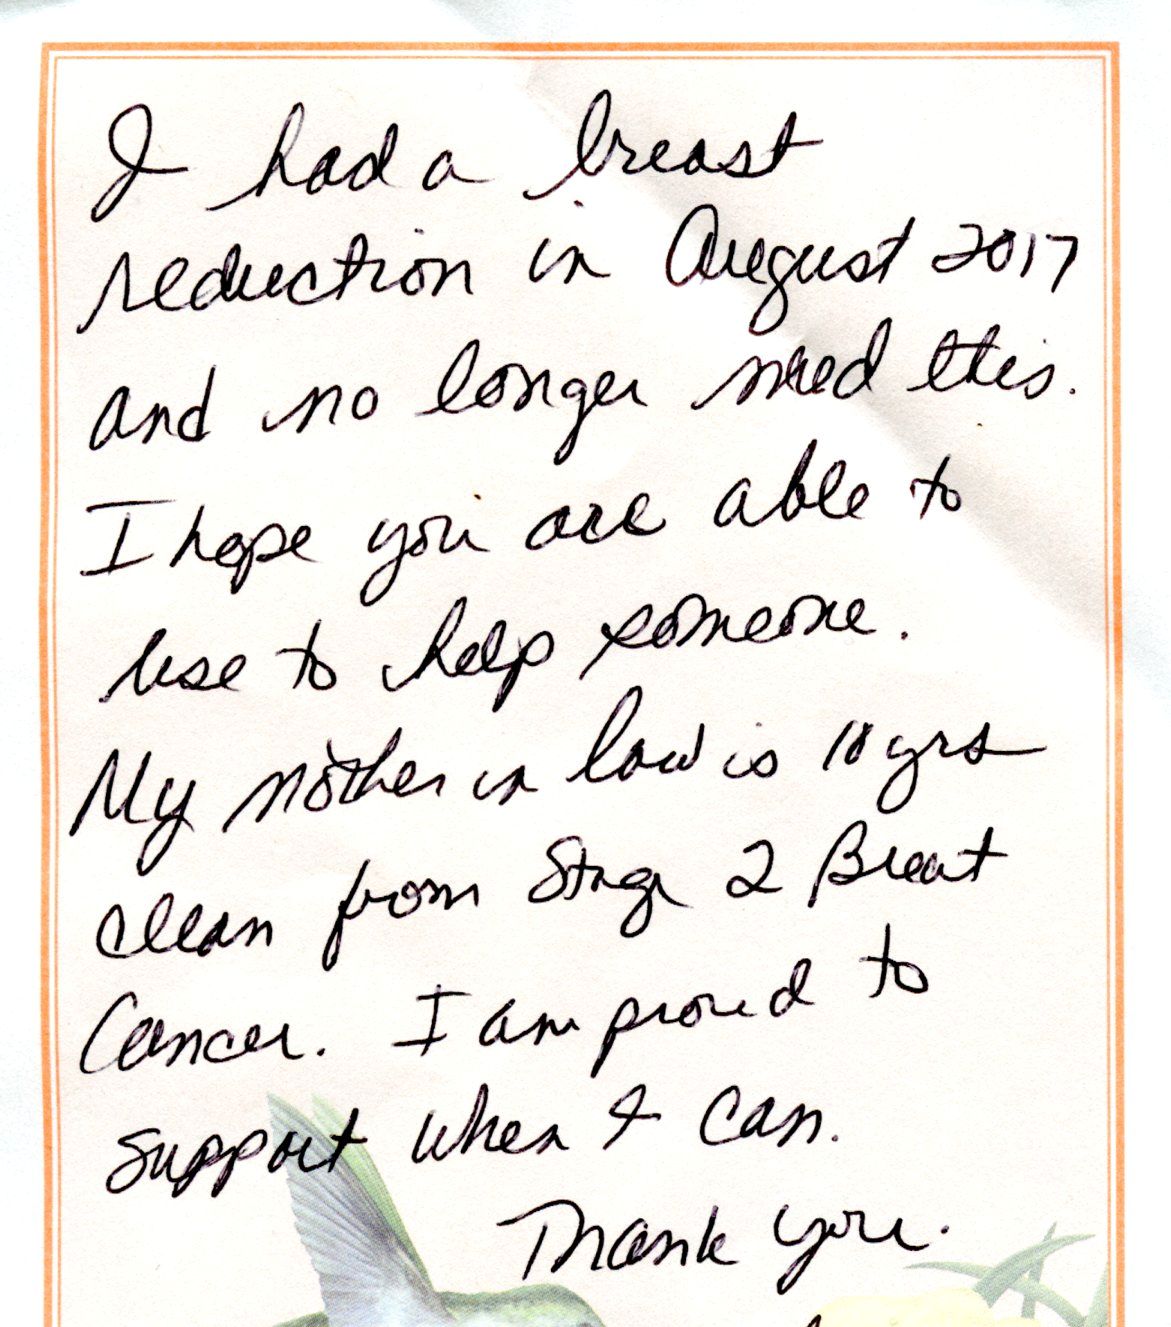 I had a breast
reduction in August 2017
and no longer need this.
I hope you are able to
use to help someone.
My mother in law is 10 yrs
clean from Stage 2 Breast
Cancer. I am proud to
support when I can.
Thank you.